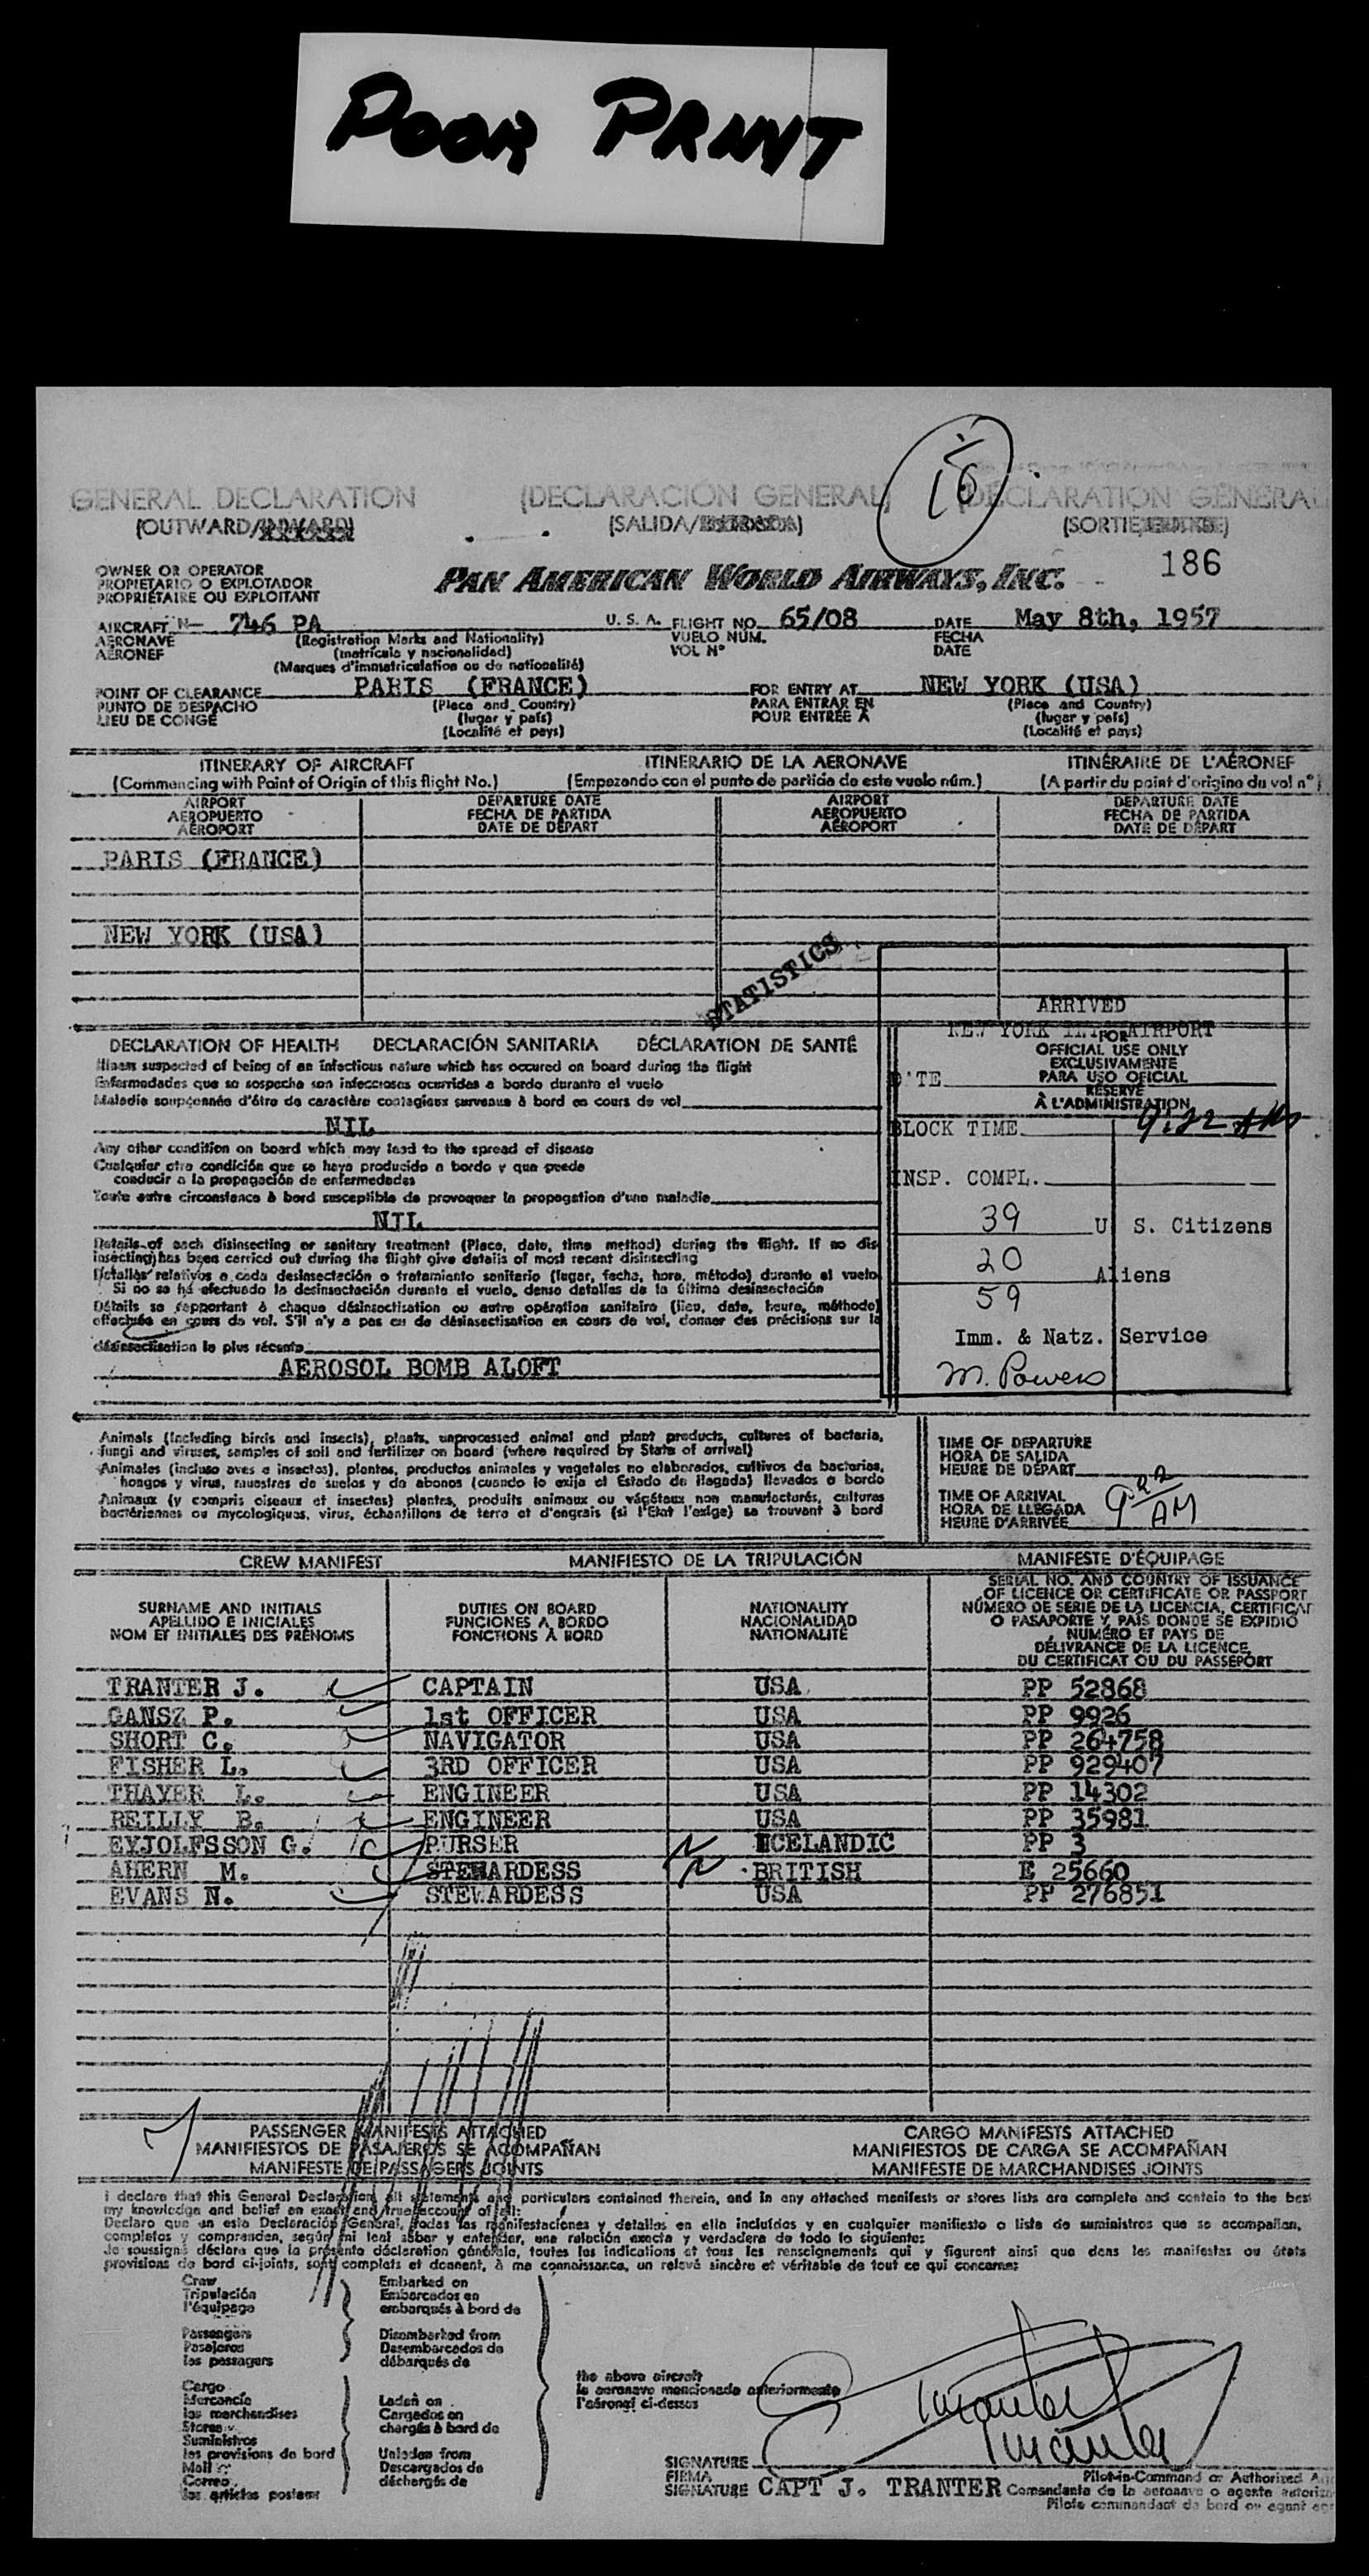 POOR PRINT
16
GENERAL DECLARATION (DECLARACIÓN GENERAL) (DECLARATION GENERAL
(OUTWARD/INWARD) (SALIDA/ENTRADA) (SORTIE
186
OWNER OR OPERATOR
PROPIETARIO O EXPLOTADOR
PROPRIÉTAIRE OU EXPLOITANT
PAN AMERICAN WORLD AIRWAYS, INC.
AIRCRAFT N- 746 PA U. S. A. FLIGHT NO. 65/08 DATE May 8th, 1957
AERONAVE (Registration Marks and Nationality) VUELO NÚM. FECHA
AÉRONEF (matrícula y nacionalidad) VOL N° DATE
(Marques d'immatriculation ou de nationalité)
POINT OF CLEARANCE PARIS (FRANCE) FOR ENTRY AT NEW YORK (USA)
PUNTO DE DESPACHO (Place and Country) PARA ENTRAR EN (Place and Country)
LIEU DE CONGÉ (lugar y país) POUR ENTRÉE À (lugar y país)
(Localité et pays) (Localité et pays)
ITINERARY OF AIRCRAFT ITINERARIO DE LA AERONAVE ITINÉRAIRE DE L'AÉRONEF
(Commencing with Point of Origin of this flight No.) (Empezando con el punto de partida de este vuelo núm.) (A partir du point d'origine du vol n°)
AIRPORT DEPARTURE DATE AIRPORT DEPARTURE DATE
AEROPUERTO FECHA DE PARTIDA AEROPUERTO FECHA DE PARTIDA
AÉROPORT DATE DE DÉPART AÉROPORT DATE DE DÉPART
PARIS (FRANCE)
NEW YORK (USA)
STATISTICS
ARRIVED
NEW YORK INT. AIRPORT
FOR
OFFICIAL USE ONLY
EXCLUSIVAMENTE
PARA USO OFICIAL
RÉSERVÉ
À L'ADMINISTRATION
DATE
BLOCK TIME 9:22 AM
INSP. COMPL.
39 U S. Citizens
20 Aliens
59
Imm. & Natz. Service
M. Powers
DECLARATION OF HEALTH DECLARACIÓN SANITARIA DÉCLARATION DE SANTÉ
Illness suspected of being of an infectious nature which has occured on board during the flight
Enfermedades que se sospecha son infecciosas ocurridas a bordo durante el vuelo
Maladie soupçonnée d'être de caractère contagieux survenue à bord en cours de vol
NIL
Any other condition on board which may lead to the spread of disease
Cualquier otra condición que se haya producido a bordo y que puede
conducir a la propagación de enfermedades
Toute autre circonstance à bord susceptible de provoquer la propagation d'une maladie
NIL
Details of each disinsecting or sanitary treatment (Place, date, time method) during the flight. If no dis
insecting has been carried out during the flight give details of most recent disinsecting
Detalles relativos a cada desinsectación o tratamiento sanitario (lugar, fecha, hora, método) durante el vuelo
Si no se ha efectuado la desinsectación durante el vuelo, dense detalles de la última desinsectación
Détails se rapportant à chaque désinsectisation ou autre opération sanitaire (lieu, date, heure, méthode)
effectuée en cours de vol. S'il n'y a pas eu de désinsectisation en cours de vol, donner des précisions sur la
désinsectisation la plus récente
AEROSOL BOMB ALOFT
Animals (including birds and insects), plants, unprocessed animal and plant products, cultures of bacteria,
fungi and viruses, samples of soil and fertilizer on board (where required by State of arrival)
Animales (incluso aves e insectos), plantas, productos animales y vegetales no elaborados, cultivos de bacterias,
hongos y virus, muestras de suelos y de abonos (cuando lo exija el Estado de llegada) llevados a bordo
Animaux (y compris oiseaux et insectes) plantes, produits animaux ou végétaux non manufacturés, cultures
bactériennes ou mycologiques, virus, échantillons de terre et d'engrais (si l'Etat l'exige) se trouvant à bord
TIME OF DEPARTURE
HORA DE SALIDA
HEURE DE DÉPART
TIME OF ARRIVAL
HORA DE LLEGADA
HEURE D'ARRIVÉE 9:22 AM
CREW MANIFEST MANIFIESTO DE LA TRIPULACIÓN MANIFESTE D'ÉQUIPAGE
SURNAME AND INITIALS
APELLIDO E INICIALES
NOM ET INITIALES DES PRÉNOMS
DUTIES ON BOARD
FUNCIONES A BORDO
FONCTIONS À BORD
NATIONALITY
NACIONALIDAD
NATIONALITÉ
SERIAL NO. AND COUNTRY OF ISSUANCE
OF LICENCE OR CERTIFICATE OR PASSPORT
NÚMERO DE SERIE DE LA LICENCIA, CERTIFICAT
O PASAPORTE Y PAÍS DONDE SE EXPIDIÓ
NUMÉRO ET PAYS DE
DÉLIVRANCE DE LA LICENCE,
DU CERTIFICAT OU DU PASSEPORT
TRANTER J. CAPTAIN USA PP 52868
GANSZ P. 1st OFFICER USA PP 9926
SHORT C. NAVIGATOR USA PP 264758
FISHER L. 3RD OFFICER USA PP 929407
THAYER L. ENGINEER USA PP 14302
REILLY B. ENGINEER USA PP 35981
EYJOLFSSON G. PURSER ICELANDIC PP 3
AHERN M. STEWARDESS BRITISH E 25660
EVANS N. STEWARDESS USA PP 276851
PASSENGER MANIFESTS ATTACHED CARGO MANIFESTS ATTACHED
MANIFIESTOS DE PASAJEROS SE ACOMPAÑAN MANIFIESTOS DE CARGA SE ACOMPAÑAN
MANIFESTE DE PASSAGERS JOINTS MANIFESTE DE MARCHANDISES JOINTS
I declare that this General Declaration, all statements and particulars contained therein, and in any attached manifests or stores lists are complete and contain to the bes
my knowledge and belief an exact and true account of all:
Declaro que en esta Declaración General, todas las manifestaciones y detalles en ella incluídos y en cualquier manifiesto o lista de suministros que se acompañan,
completos y comprenden, según mi leal saber y entender, una relación exacta y verdadera de todo lo siguiente:
Je soussigné déclare que la présente déclaration générale, toutes les indications et tous les renseignements qui y figurent ainsi que dans les manifestes ou états
provisions de bord ci-joints, sont complets et donnent, à ma connaissance, un relevé sincère et véritable de tout ce qui concerne:
Crew
Tripulación
l'équipage
Embarked on
Embarcados en
embarqués à bord de
Passengers
Pasajeros
les passagers
Disembarked from
Desembarcados de
débarqués de
the above aircraft
la aeronave mencionada anteriormente
l'aéronef ci-dessus
Cargo
Mercancía
les marchandises
Stores
Suministros
les provisions de bord
Mail
Correo
les articles postaux
Laden on
Cargados en
chargés à bord de
Unladen from
Descargados de
déchargés de
Tranter
Tranter
SIGNATURE
FIRMA
SIGNATURE CAPT J. TRANTER
Pilot-in-Command or Authorized A
Comandante de la aeronave o agente autoriz
Pilote commandant de bord ou agent